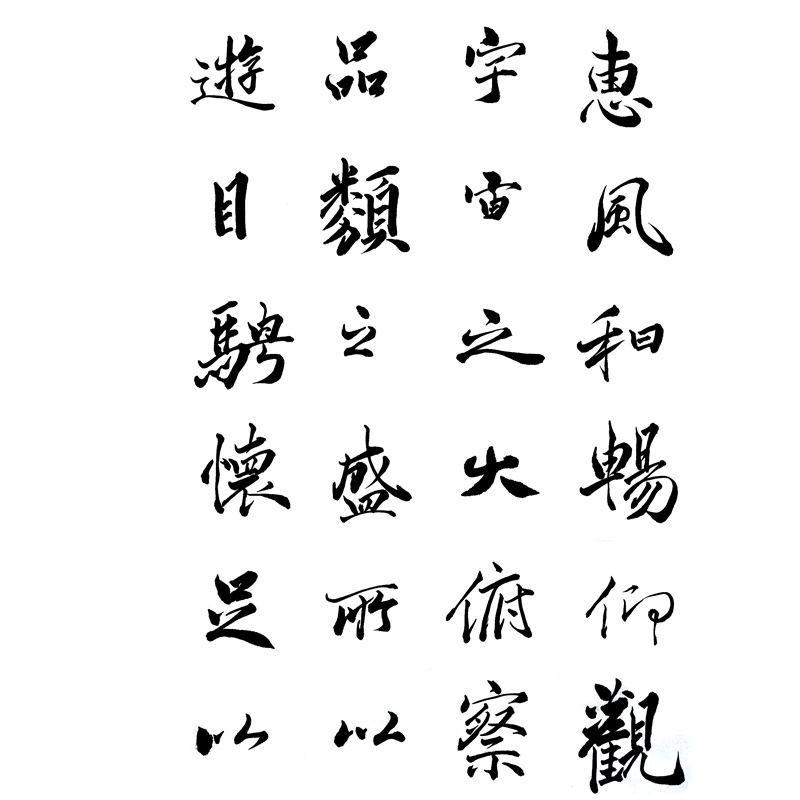 恵風和暢仰觀
宇宙之大俯察
品類之盛所以
遊目騁懷足以